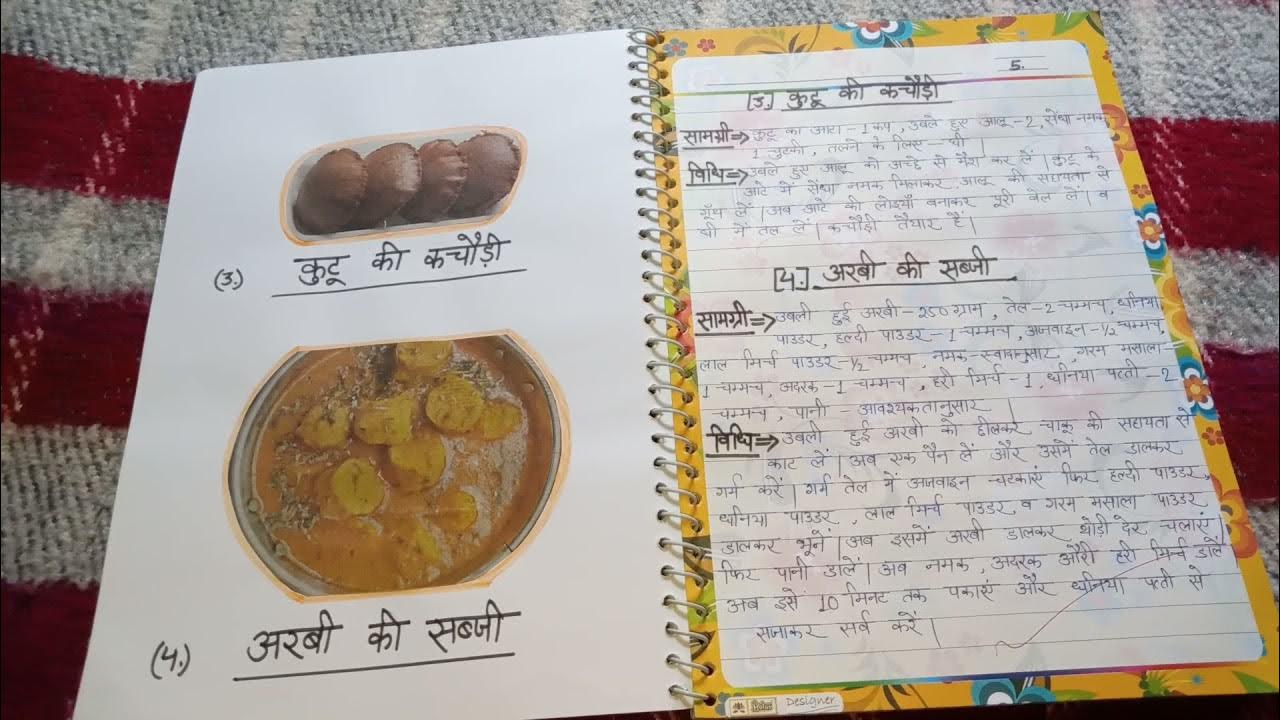 (3.) कुटू की कचौड़ी
(4.) अरबी की सब्जी
5.
[3.] कुटू की कचौड़ी
सामग्री⇒ कुटू का आटा-1 कप, उबले हुए आलू-2, सेंधा नमक-
1 चुटकी, तलने के लिए- घी।
विधि⇒ उबले हुए आलू को अच्छे से मैश कर लें। कुटू के
आटे में सेंधा नमक मिलाकर आलू की सहायता से
गूँथ लें। अब आटे की लोइयाँ बनाकर पूरी बेल लें। व
घी में तल लें। कचौड़ी तैयार हैं।
[4.] अरबी की सब्जी
सामग्री⇒ उबली हुई अरबी-250 ग्राम, तेल-2 चम्मच, धनिया
पाउडर, हल्दी पाउडर-1 चम्मच, अजवाइन-1/2 चम्मच,
लाल मिर्च पाउडर-1/2 चम्मच, नमक-स्वादानुसार, गरम मसाला-
1 चम्मच, अदरक-1 चम्मच, हरी मिर्च-1, धनिया पत्ती-2
चम्मच, पानी-आवश्यकतानुसार।
विधि⇒ उबली हुई अरबी को छीलकर चाकू की सहायता से
काट लें। अब एक पैन लें और उसमें तेल डालकर
गर्म करें। गर्म तेल में अजवाइन चटकाएं फिर हल्दी पाउडर,
धनिया पाउडर, लाल मिर्च पाउडर व गरम मसाला पाउडर
डालकर भूनें। अब इसमें अरबी डालकर थोड़ी देर चलाएं
फिर पानी डालें। अब नमक, अदरक और हरी मिर्च डालें
अब इसे 10 मिनट तक पकाएं और धनिया पत्ती से
सजाकर सर्व करें।
Designer